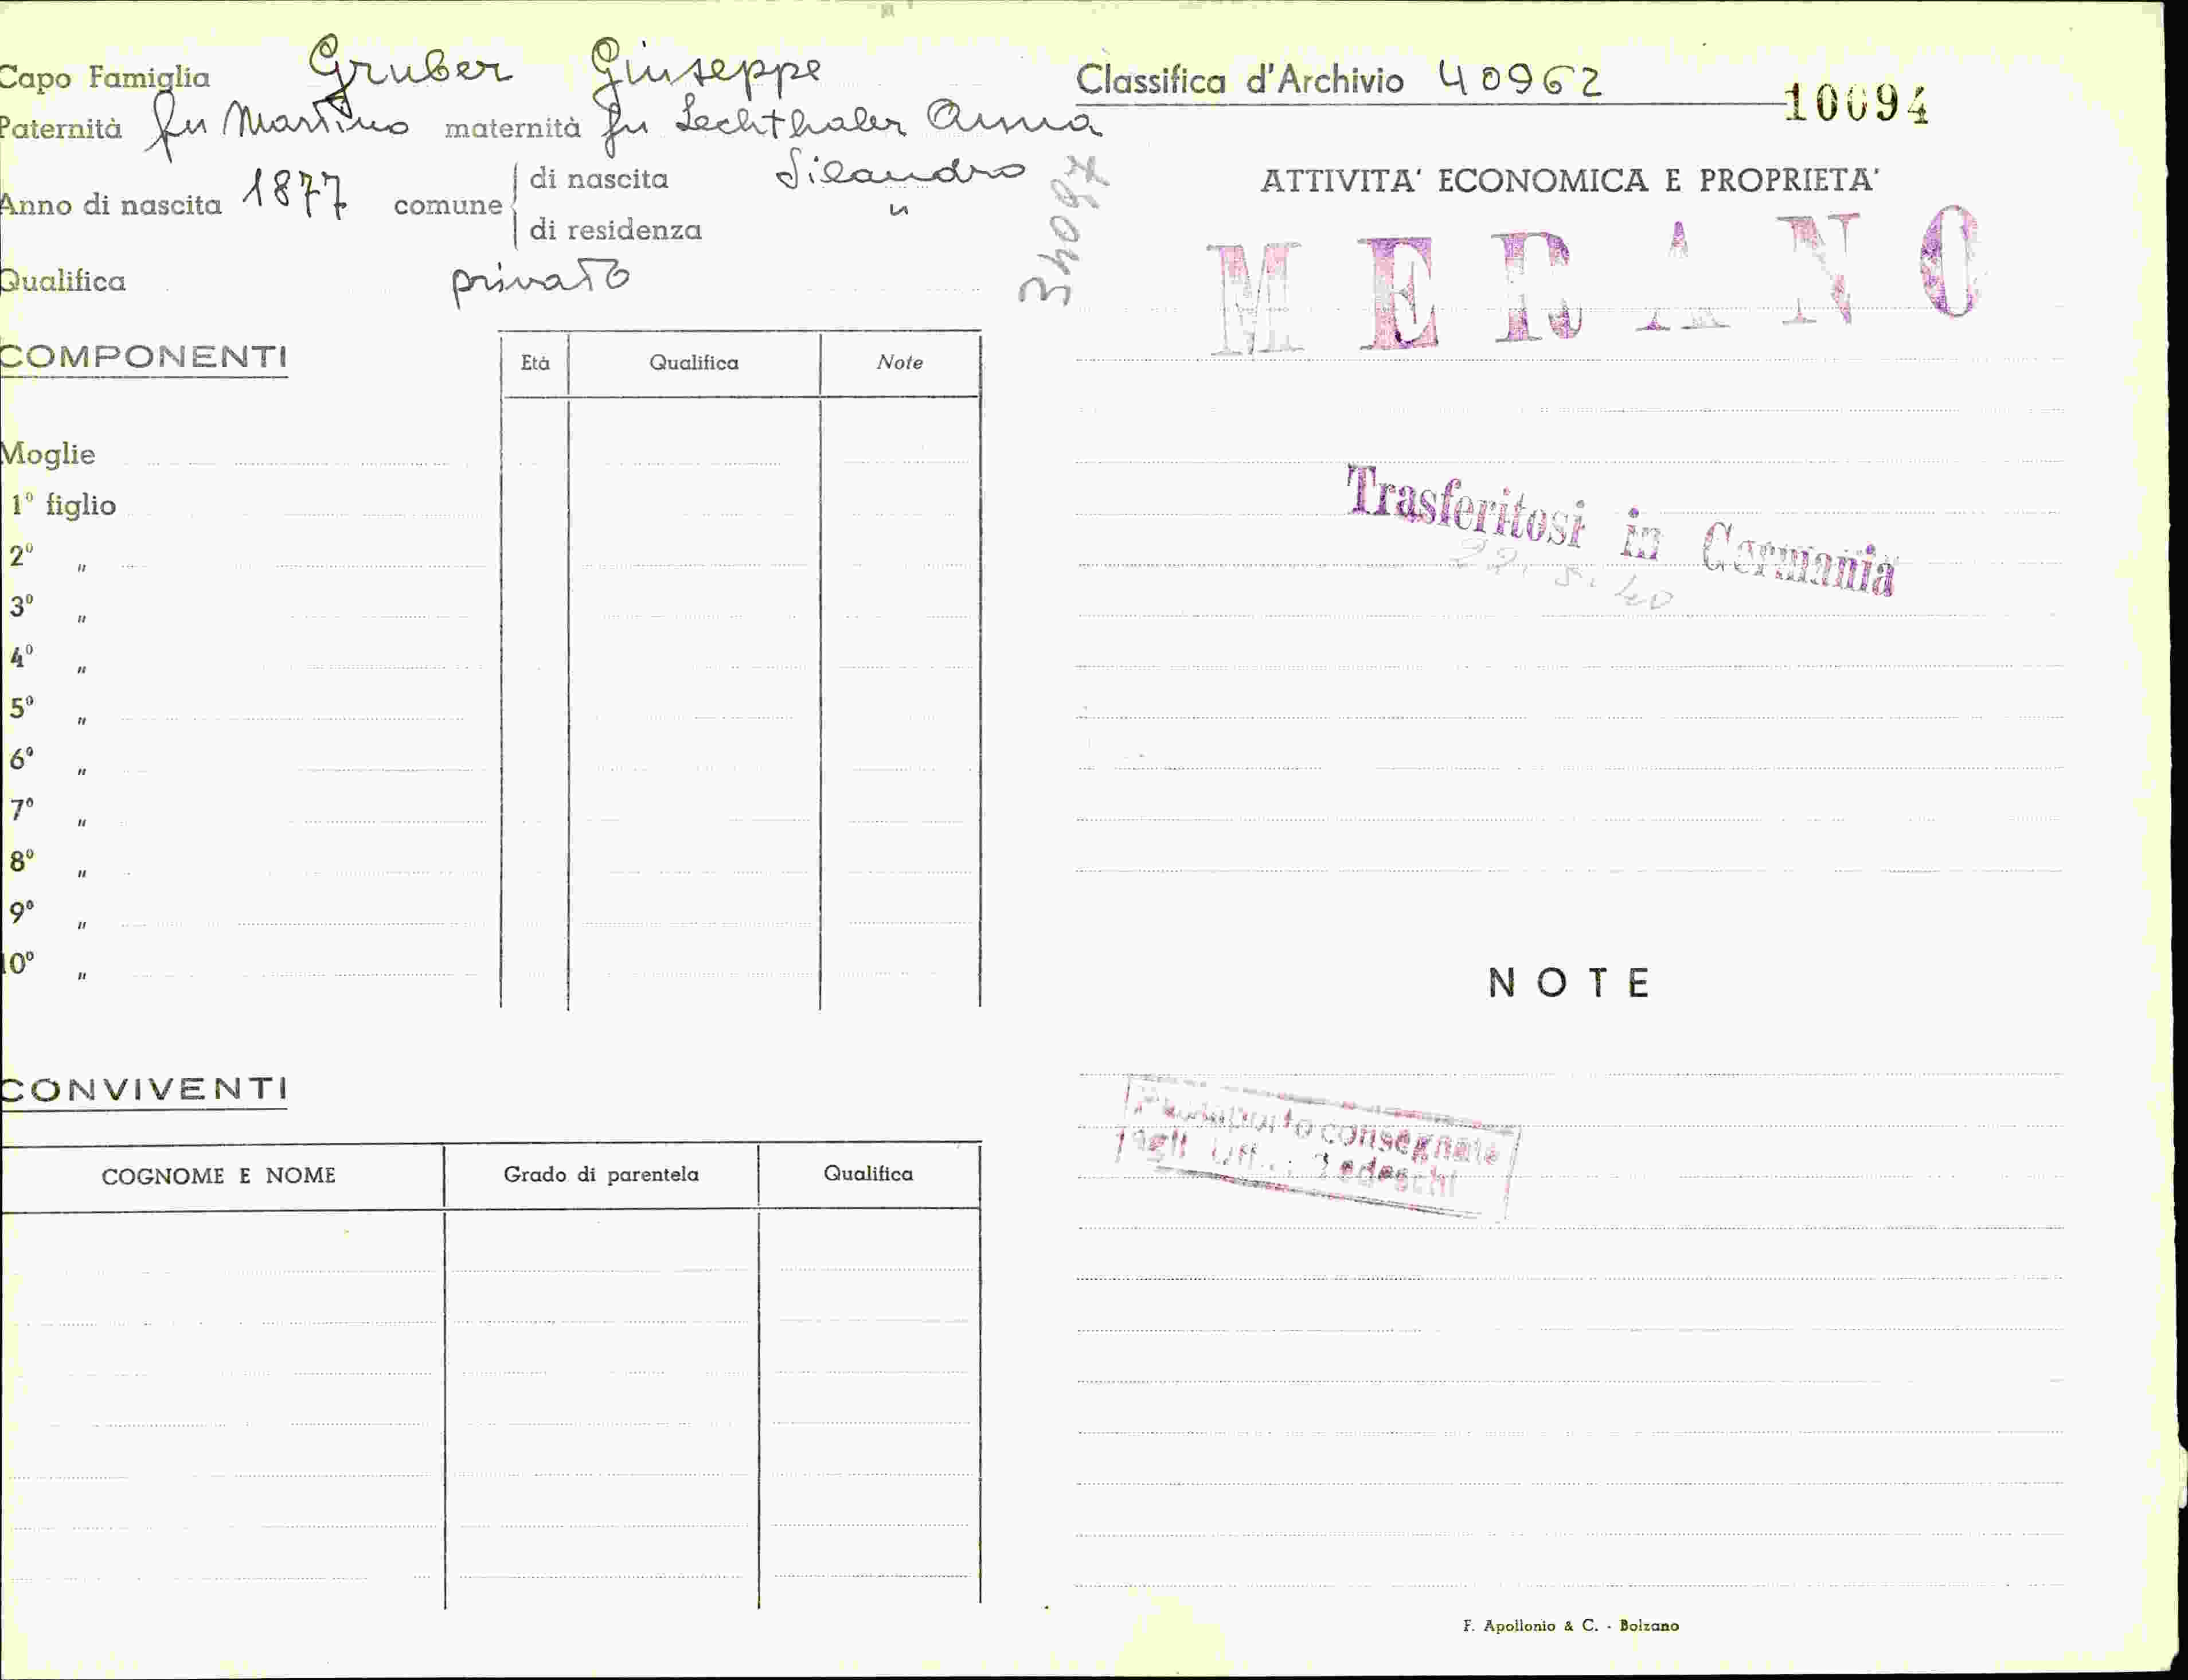 Capo Famiglia Gruber Giuseppe
Paternità fu Martino maternità fu Lechthaler Anna
Anno di nascita 1877 comune di nascita Silandro
di residenza "
Qualifica privato
COMPONENTI
Età Qualifica Note
Moglie
1º figlio
2º "
3º "
4º "
5º "
6º "
7º "
8º "
9º "
10º "
CONVIVENTI
COGNOME E NOME Grado di parentela Qualifica
34097
Classifica d'Archivio 40962
10094
ATTIVITA' ECONOMICA E PROPRIETA'
MERANO
Trasferitosi in Germania
22.5.40
NOTE
consegnato
Tedeschi
F. Apollonio & C. - Bolzano